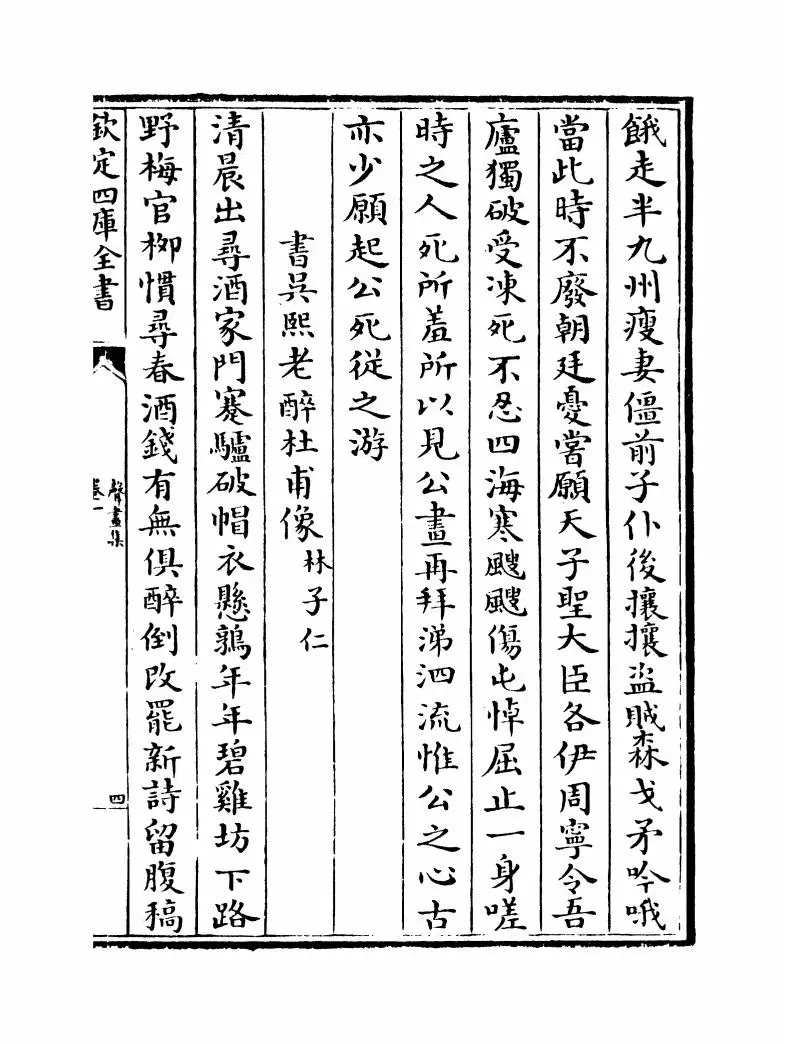 餓走半九州瘦妻僵前子仆後攘攘盜賊森戈矛吟哦
當此時不廢朝廷憂嘗願天子聖大臣各伊周寧令吾
廬獨破受凍死不忍四海寒颼颼傷屯悼屈止一身嗟
時之人死所羞所以見公畫再拜涕泗流惟公之心古
亦少願起公死從之游
書吳熙老醉杜甫像林子仁
清晨出尋酒家門蹇驢破帽衣懸鶉年年碧雞坊下路
野梅官栁慣尋春酒錢有無俱醉倒改罷新詩留腹稿
欽定四庫全書
聲畫集
卷一
四